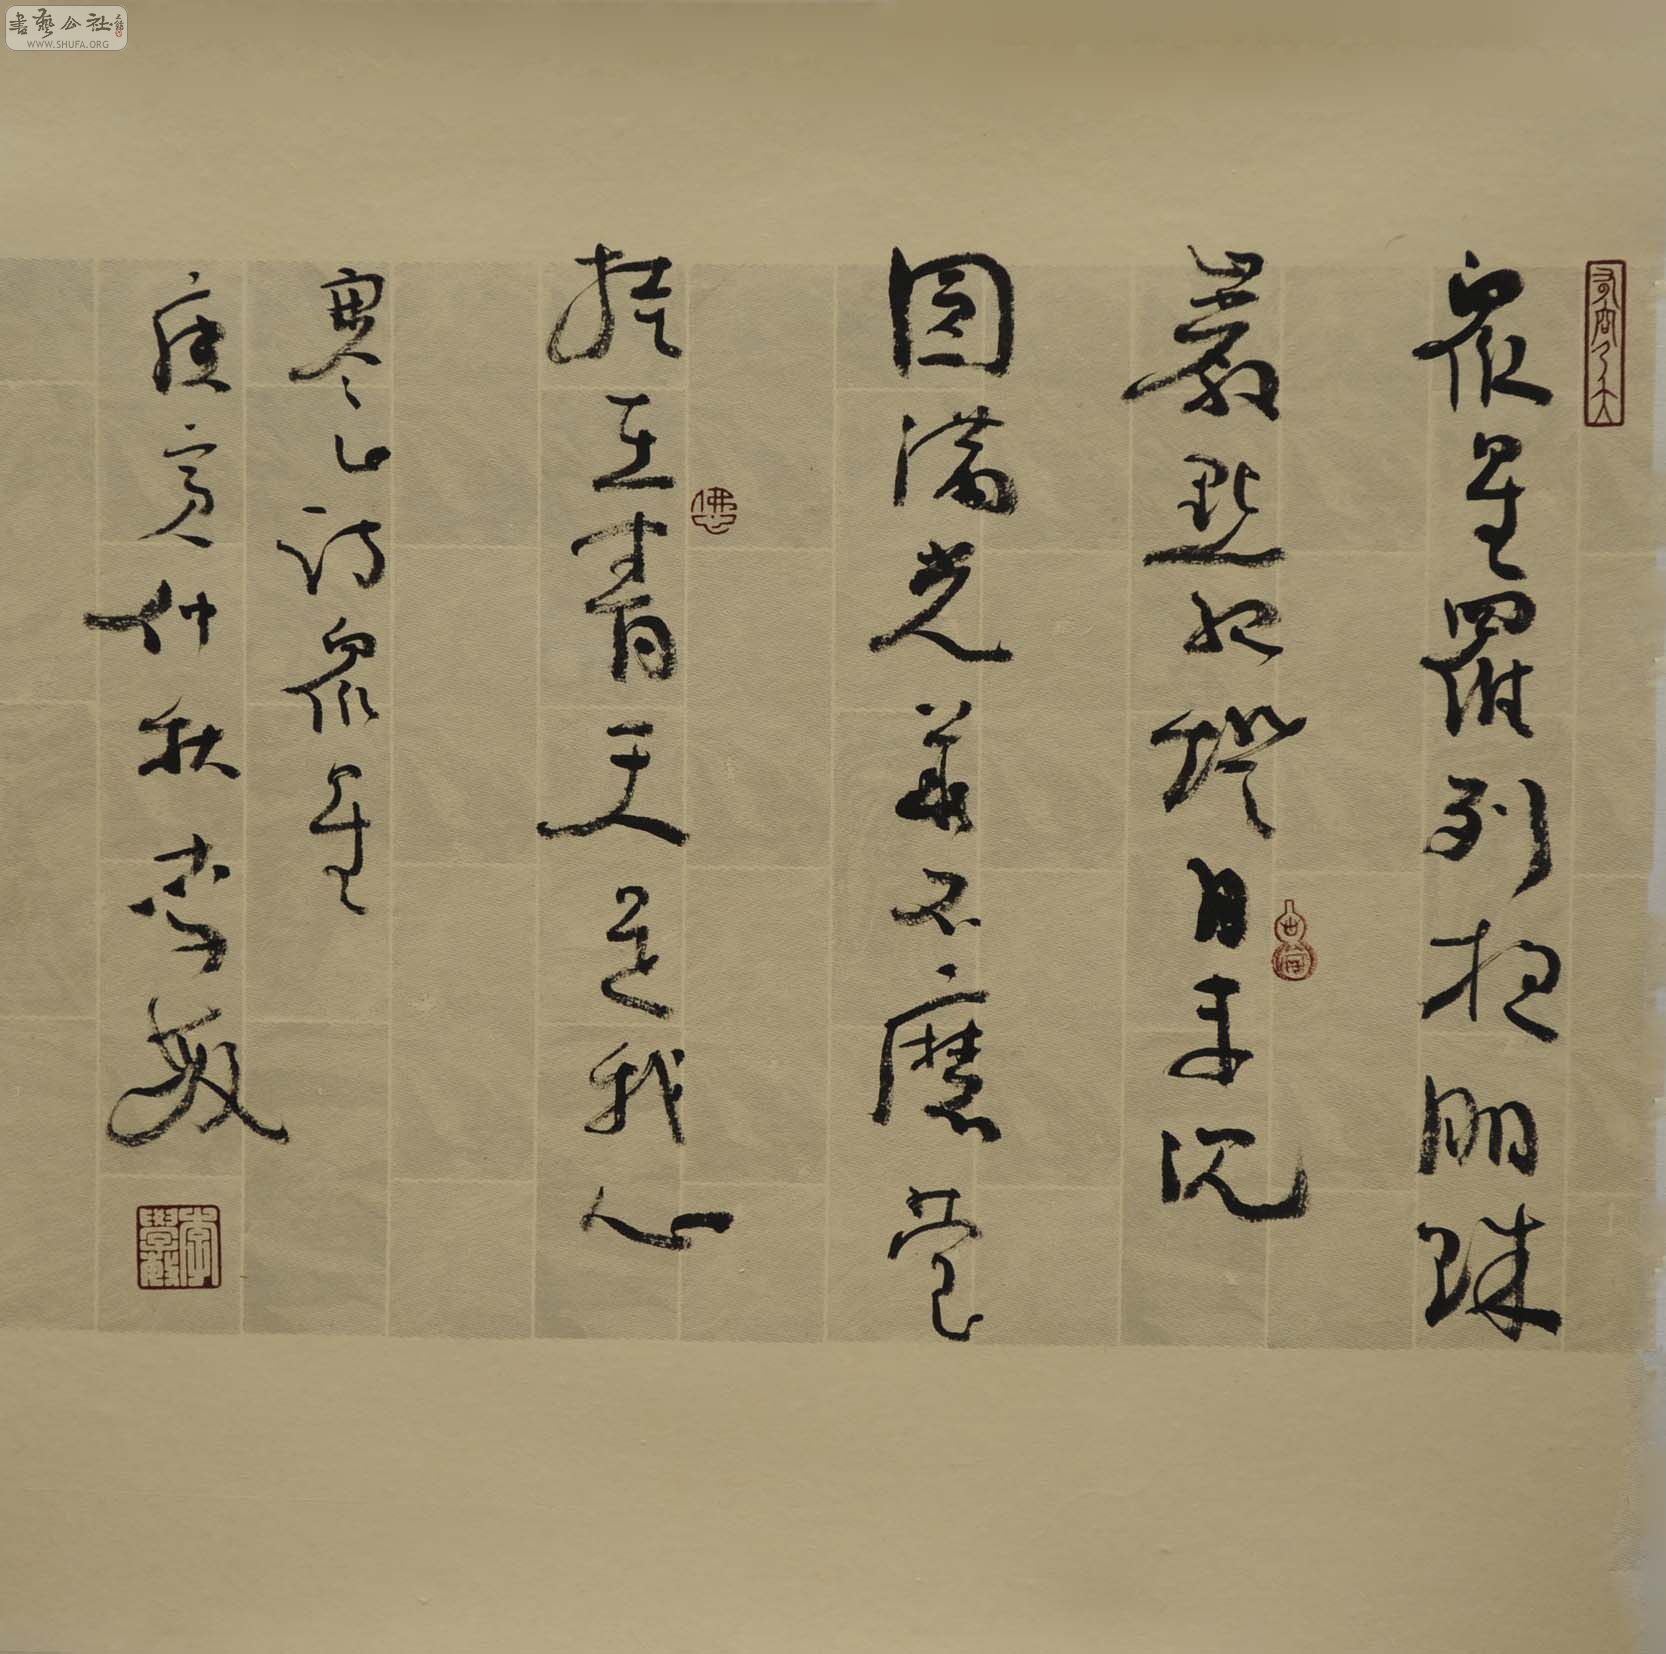 書藝公社
WWW.SHUFA.ORG
眾星羅列夜明珠
巖點孤燈月未沉
圓滿光華不磨瑩
挂在青天是我心
寒山詩眾星
庚寅仲秋李
佛心